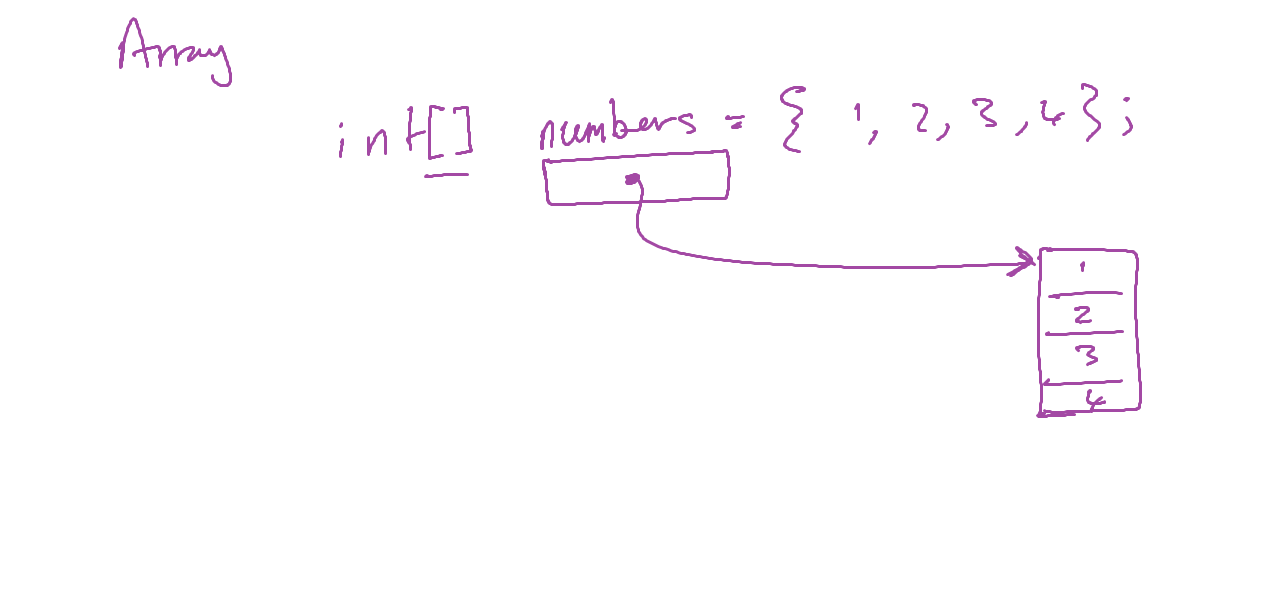 Array
int[] numbers = { 1, 2, 3, 4 };
1
2
3
4